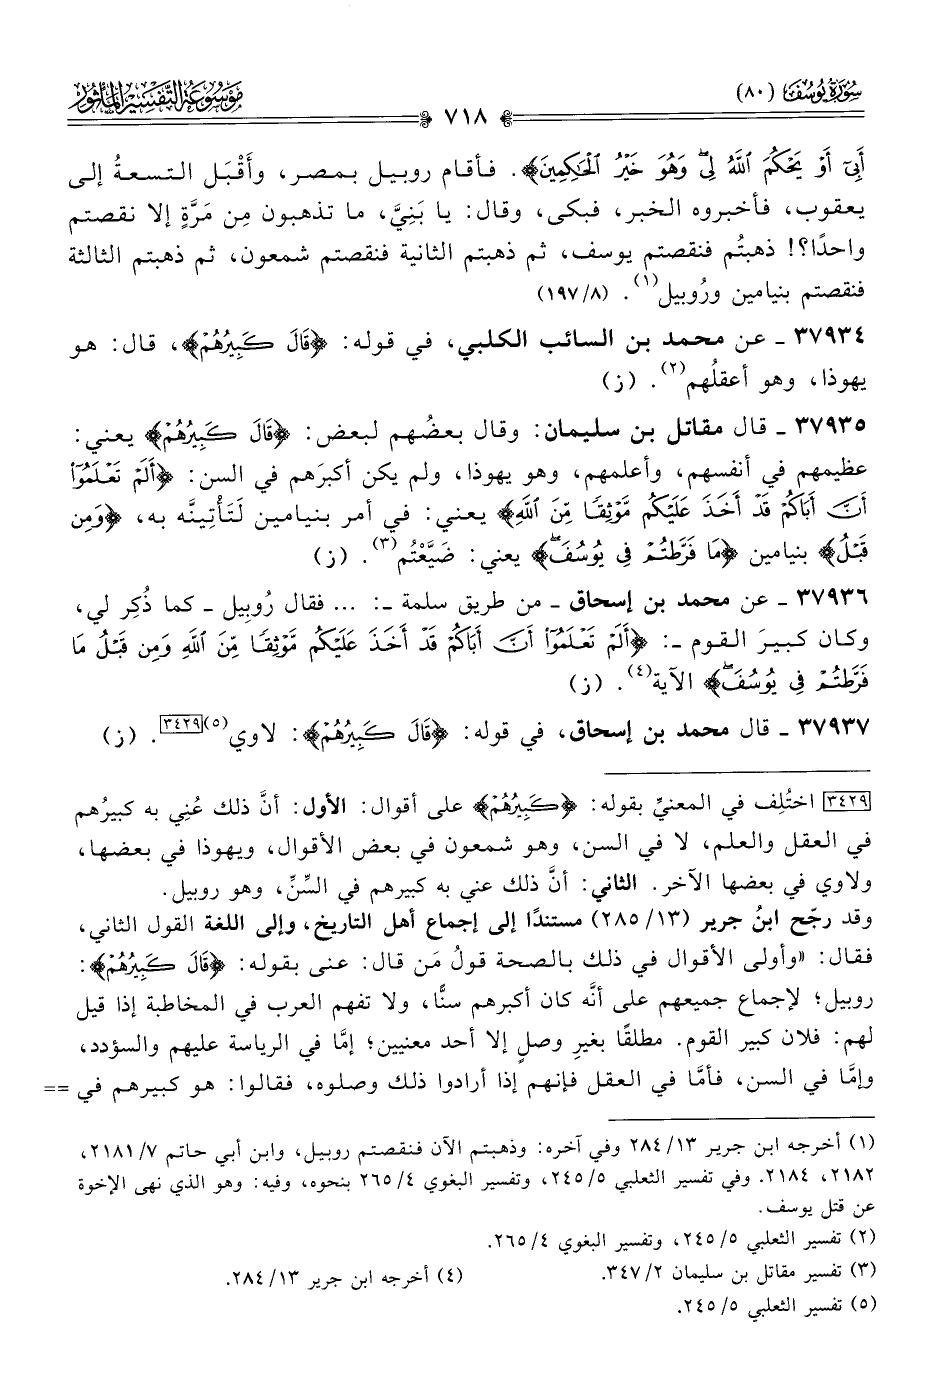 سُورَةُ يُوسُفَ (٨٠)
موسوعة التفسير المأثور
٧١٨
أَبِىٓ أَوْ يَحْكُمَ ٱللَّهُ لِىۖ وَهُوَ خَيْرُ ٱلْحَٰكِمِينَ﴾. فأقام روبيل بمصر، وأَقْبَل التسعةُ إلى
يعقوب، فأخبروه الخبر، فبكى، وقال: يا بَنِيَّ، ما تذهبون مِن مَرَّةٍ إلا نقصتم
واحدًا؟! ذهبتُم فنقصتم يوسف، ثم ذهبتم الثانية فنقصتم شمعون، ثم ذهبتم الثالثة
فنقصتم بنيامين ورُوبيل(١). (١٩٧/٨)
٣٧٩٣٤ ـ عن محمد بن السائب الكلبي، في قوله: ﴿قَالَ كَبِيرُهُمْ﴾، قال: هو
يهوذا، وهو أعقلُهم(٢). (ز)
٣٧٩٣٥ ـ قال مقاتل بن سليمان: وقال بعضُهم لبعض: ﴿قَالَ كَبِيرُهُمْ﴾ يعني:
عظيمهم في أنفسهم، وأعلمهم، وهو يهوذا، ولم يكن أكبرَهم في السن: ﴿أَلَمْ تَعْلَمُوٓا۟
أَنَّ أَبَاكُمْ قَدْ أَخَذَ عَلَيْكُم مَّوْثِقًا مِّنَ ٱللَّهِ﴾ يعني: في أمر بنيامين لَتَأْتِينَّه به، ﴿وَمِن
قَبْلُ﴾ بنيامين ﴿مَا فَرَّطتُمْ فِى يُوسُفَۖ﴾ يعني: ضَيَّعْتُم(٣). (ز)
٣٧٩٣٦ ـ عن محمد بن إسحاق ـ من طريق سلمة ـ: ... فقال رُوبيل ـ كما ذُكِر لي،
وكان كبيرَ القوم ـ: ﴿أَلَمْ تَعْلَمُوٓا۟ أَنَّ أَبَاكُمْ قَدْ أَخَذَ عَلَيْكُم مَّوْثِقًا مِّنَ ٱللَّهِ وَمِن قَبْلُ مَا
فَرَّطتُمْ فِى يُوسُفَۖ﴾ الآية(٤). (ز)
٣٧٩٣٧ ـ قال محمد بن إسحاق، في قوله: ﴿قَالَ كَبِيرُهُمْ﴾: لاوي(٥)[٣٤٢٩]. (ز)
[٣٤٢٩] اختُلِف في المعنيِّ بقوله: ﴿كَبِيرُهُمْ﴾ على أقوال: الأول: أنَّ ذلك عُني به كبيرُهم
في العقل والعلم، لا في السن، وهو شمعون في بعض الأقوال، ويهوذا في بعضها،
ولاوي في بعضها الآخر. الثاني: أنَّ ذلك عني به كبيرهم في السِّنِّ، وهو روبيل.
وقد رجّح ابنُ جرير (١٣/ ٢٨٥) مستندًا إلى إجماع أهل التاريخ، وإلى اللغة القول الثاني،
فقال: «وأولى الأقوال في ذلك بالصحة قولُ مَن قال: عنى بقوله: ﴿قَالَ كَبِيرُهُمْ﴾:
روبيل؛ لإجماع جميعهم على أنَّه كان أكبرهم سنًّا، ولا تفهم العرب في المخاطبة إذا قيل
لهم: فلان كبير القوم. مطلقًا بغيرِ وصلٍ إلا أحد معنيين؛ إمَّا في الرياسة عليهم والسؤدد،
وإمَّا في السن، فأمَّا في العقل فإنهم إذا أرادوا ذلك وصلوه، فقالوا: هو كبيرهم في ==
(١) أخرجه ابن جرير ١٣/ ٢٨٤ وفي آخره: وذهبتم الآن فنقصتم روبيل، وابن أبي حاتم ٧/ ٢١٨١،
٢١٨٢، ٢١٨٤. وفي تفسير الثعلبي ٥/ ٢٤٥، وتفسير البغوي ٤/ ٢٦٥ بنحوه، وفيه: وهو الذي نهى الإخوة
عن قتل يوسف.
(٢) تفسير الثعلبي ٥/ ٢٤٥، وتفسير البغوي ٤/ ٢٦٥.
(٣) تفسير مقاتل بن سليمان ٢/ ٣٤٧. (٤) أخرجه ابن جرير ١٣/ ٢٨٤.
(٥) تفسير الثعلبي ٥/ ٢٤٥.